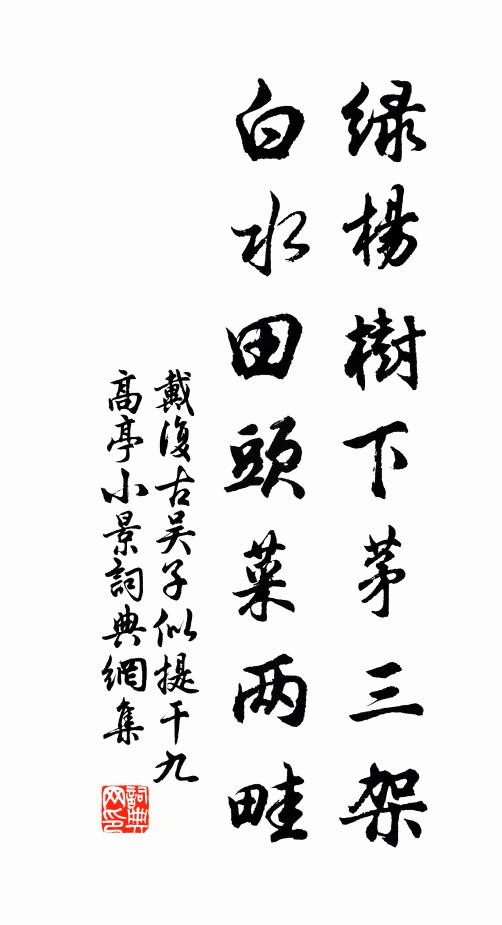 绿楊樹下茅三架
白水田頭菜两畦
戴復古吴子似提干九
高亭小景詞典網集
詞典网印